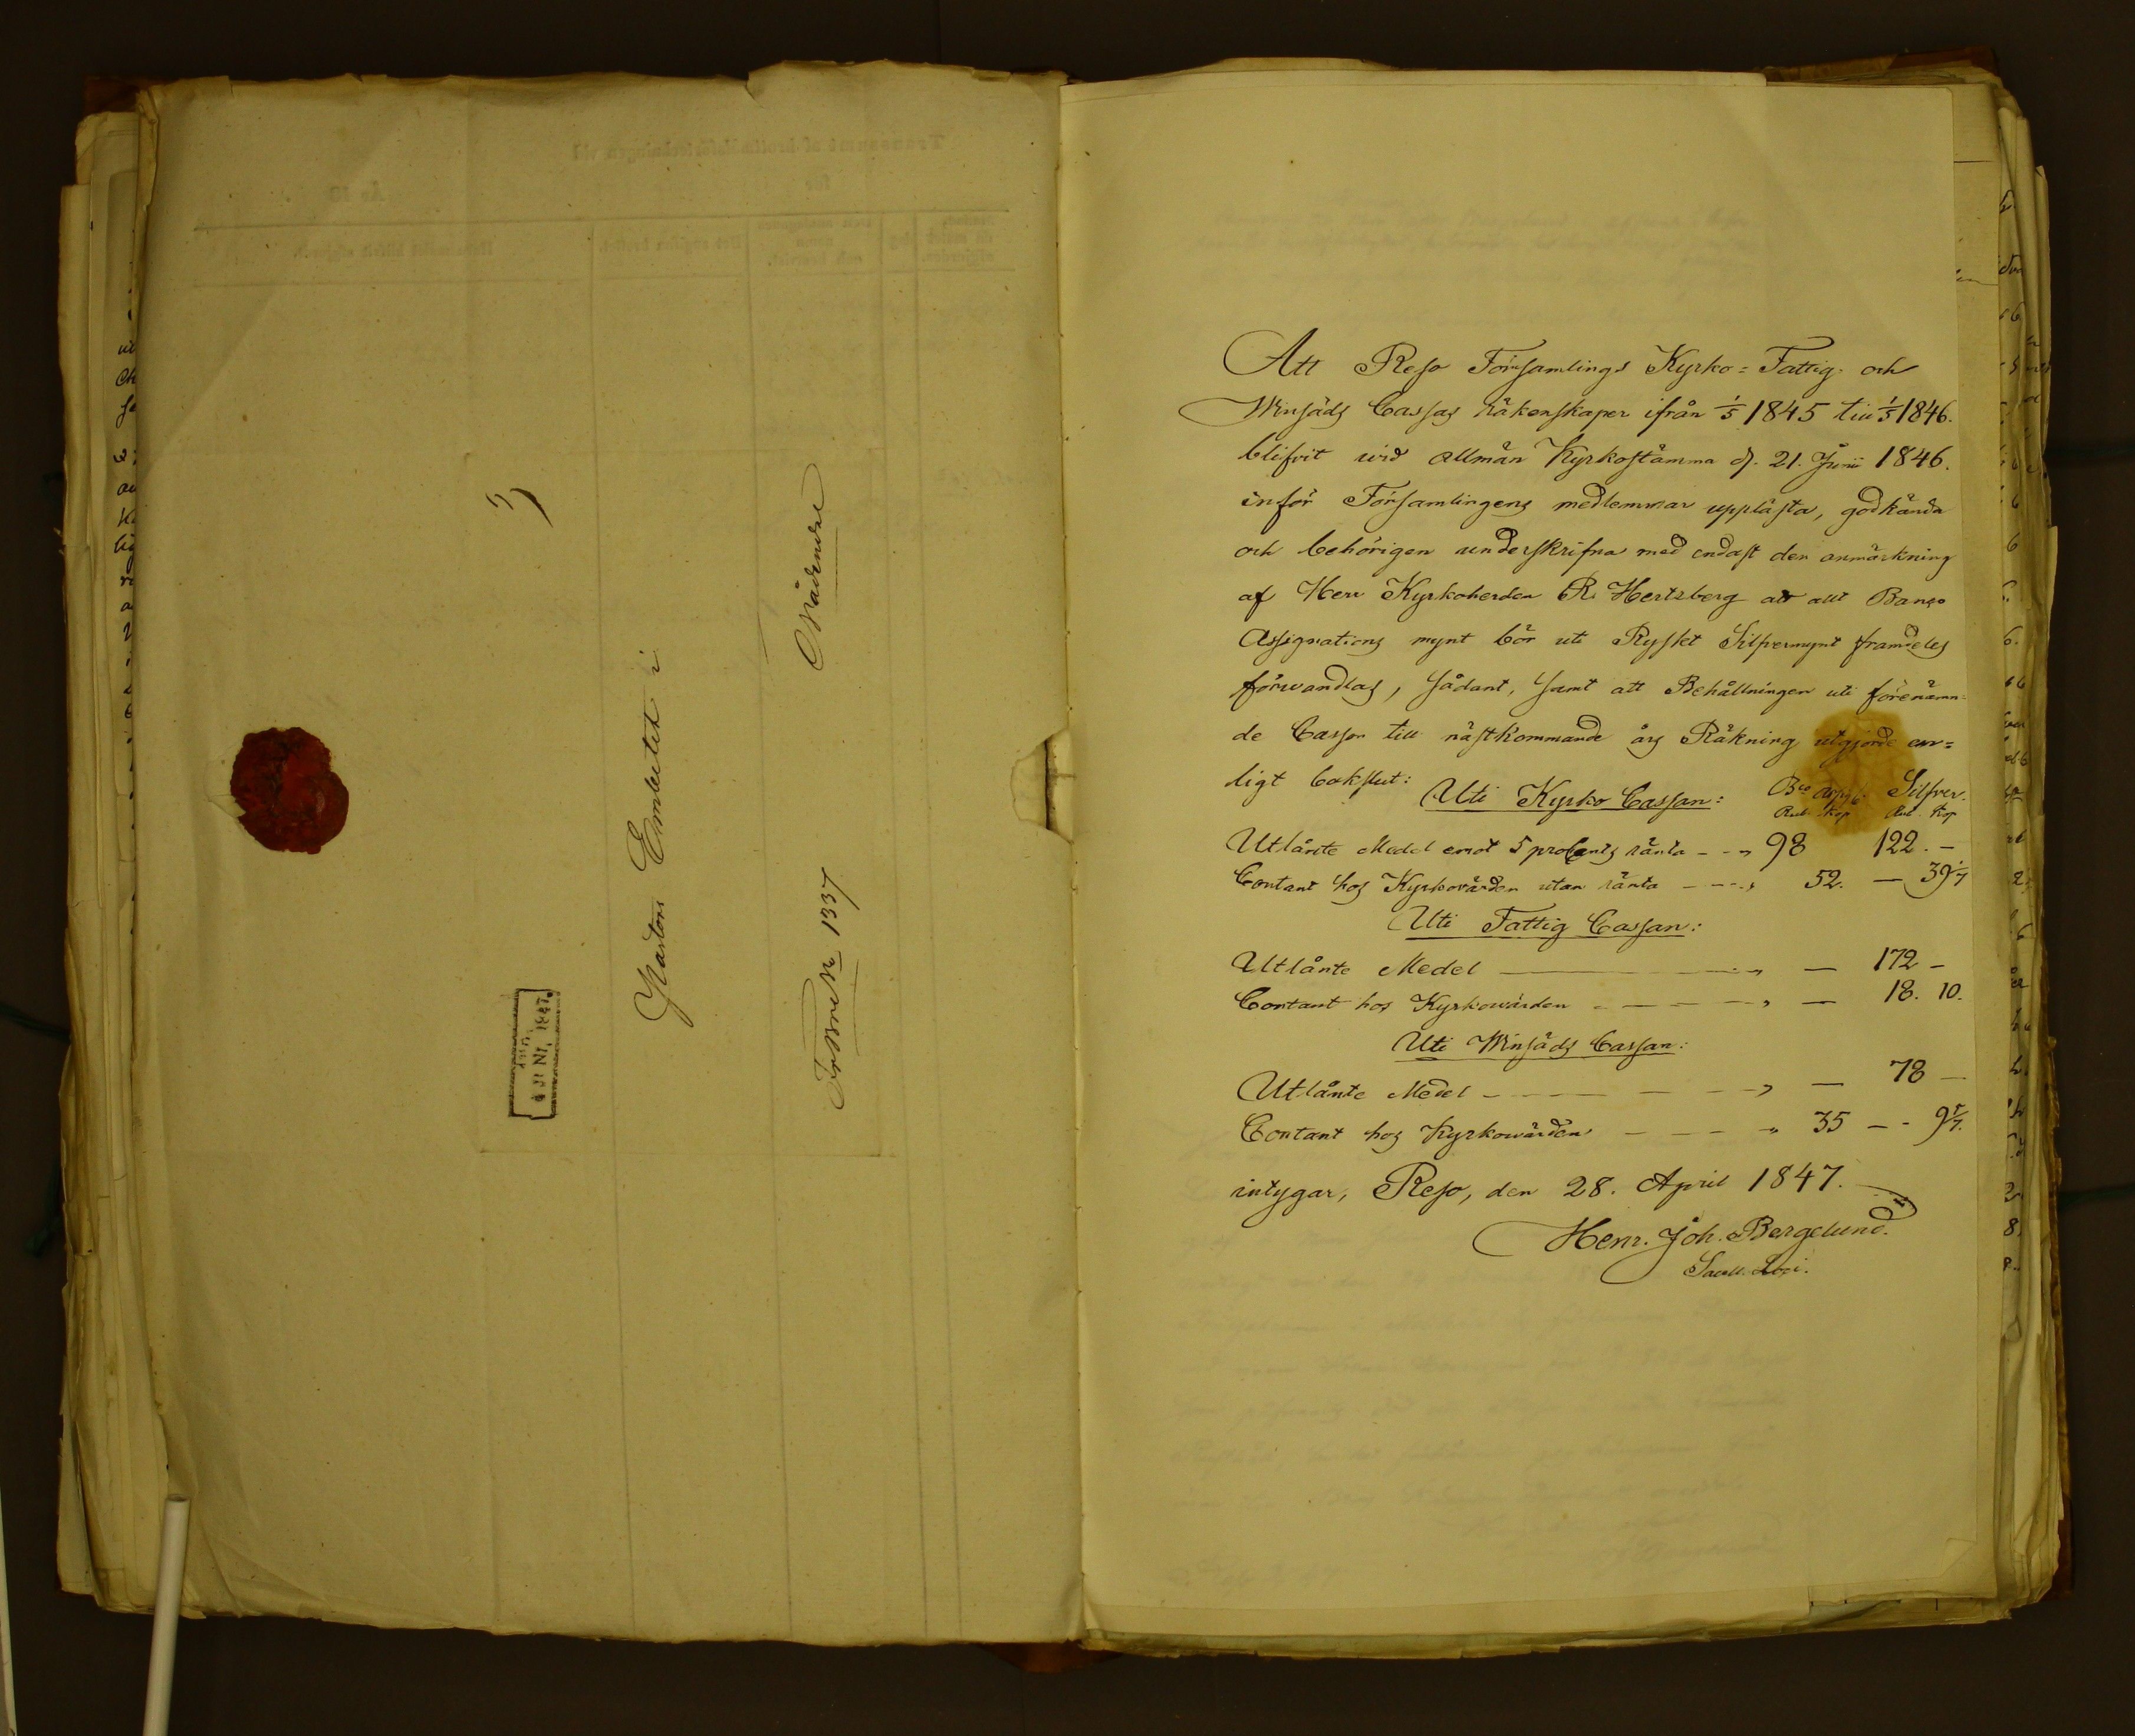 Pastors Embetet i
Nådendal
Fr. Bref № 1337
JUNI, 1847.
Att Reso Församlings Kyrko= Fattig- och
Winsäds Cassas räkenskaper ifrån 1/5 1845 till 1/5 1846.
blifvit wid allmän Kyrkostämma d. 21. Junii 1846.
inför Församlingens medlemmar upplästa, godkända
och behörigen underskrifna med endast den anmärkning
af Herr Kyrkoherden R. Hertzberg att allt Banco
Assignations mynt bör uti Ryskt Silfvermynt framdeles
förwandlas, sådant, samt att Behållningen uti förenämn=
de Cassor till nästkommande års Räkning utgjorde en=
ligt bokslut:
Uti Kyrko Cassan: Bco Assign. Silfver.
Rub. Kop Rub. Kop
Utlånte Medel emot 5 procents ränta - - " 98 122. -
Contant hos Kyrkovärden utan ränta - - - " 52. — 39 1/7
Uti Fattig Cassan:
Utlånte Medel — " — 172 -
Contant hos Kyrkowärden - - - - " — 18. 10.
Uti Winsäds Cassan:
Utlånte Medel - - - - " — 78 —
Contant hos Kyrkowärden - - - " 35 - - 9 5/7.
intygar, Reso, den 28. April 1847.
Henr. Joh. Bergelund.
Sacell. Loci.